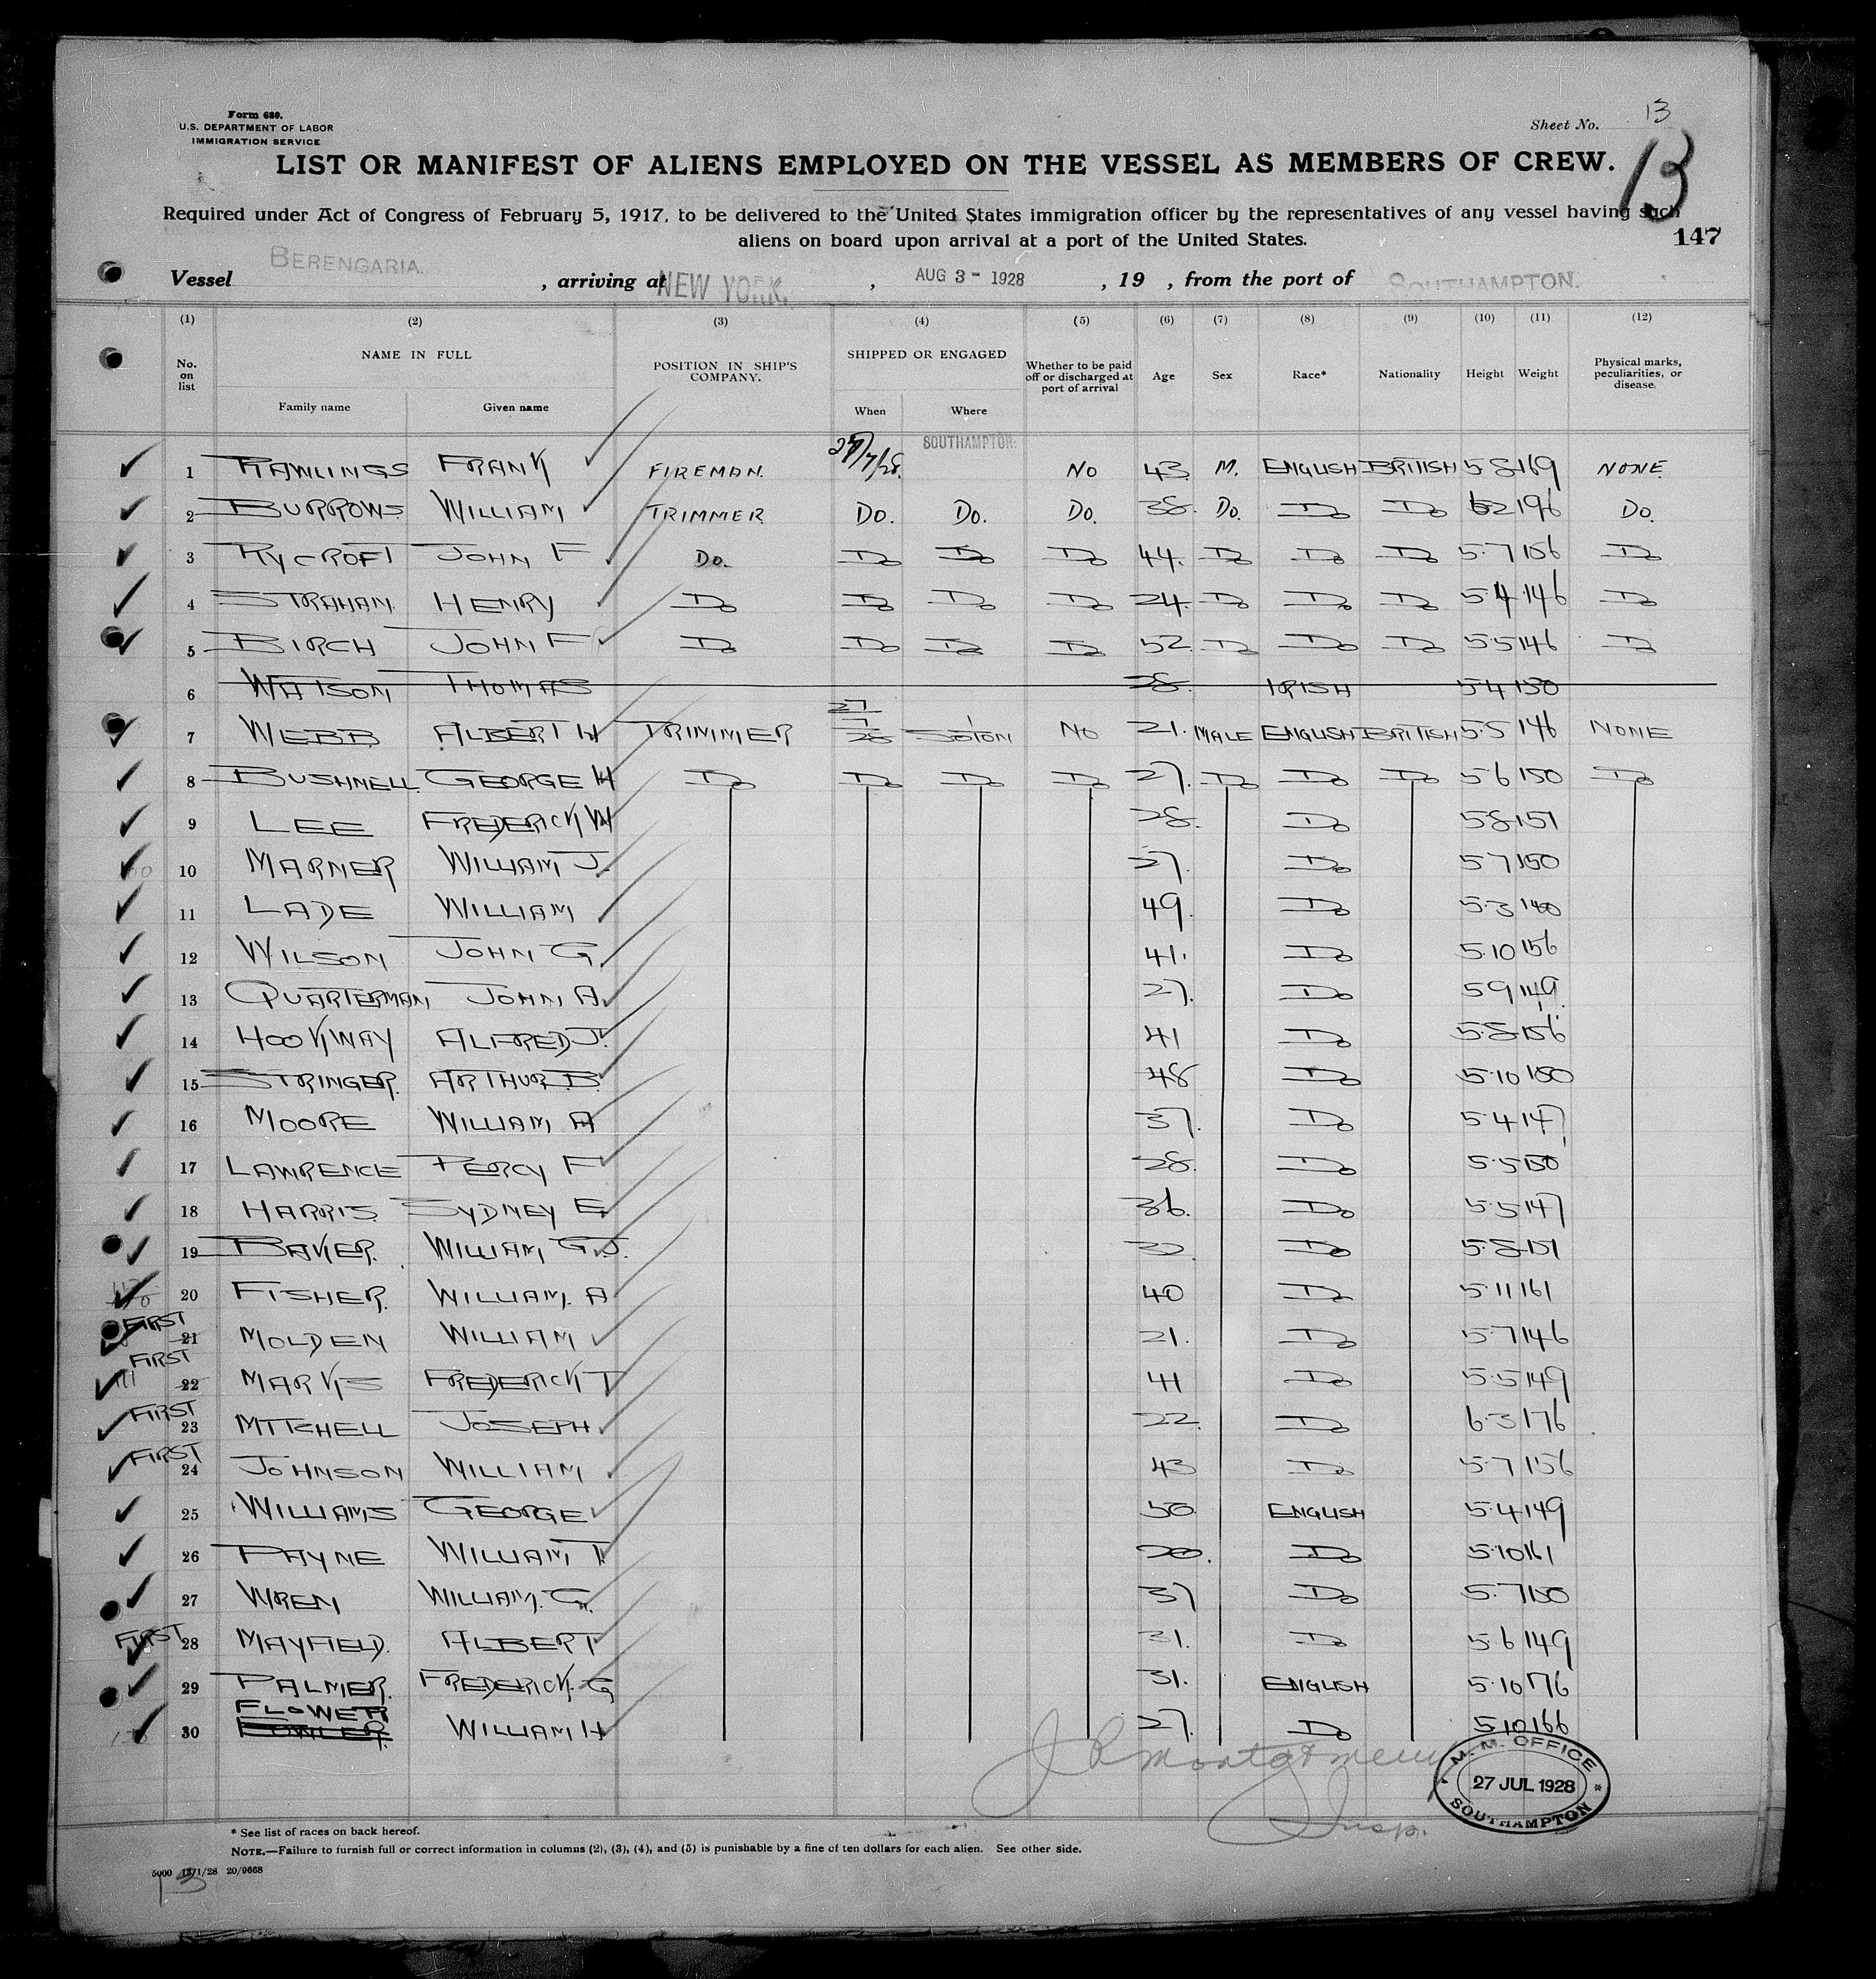 Form 680.
U.S. DEPARTMENT OF LABOR
IMMIGRATION SERVICE
Sheet No. 13
13
LIST OR MANIFEST OF ALIENS EMPLOYED ON THE VESSEL AS MEMBERS OF CREW.
Required under Act of Congress of February 5, 1917, to be delivered to the United States immigration officer by the representatives of any vessel having such
aliens on board upon arrival at a port of the United States.
147
Vessel BERENGARIA. , arriving at NEW YORK. , AUG 3 - 1928 , 19 , from the port of SOUTHAMPTON.
(1) (2) (3) (4) (5) (6) (7) (8) (9) (10) (11) (12)
No. on list NAME IN FULL POSITION IN SHIP'S COMPANY. SHIPPED OR ENGAGED Whether to be paid off or discharged at port of arrival Age Sex Race* Nationality Height Weight Physical marks, peculiarities, or disease.
Family name Given name When Where
SOUTHAMPTON.
1 RAWLINGS FRANK FIREMAN. 27/7/28. NO 43 M. ENGLISH BRITISH 5 8 169 NONE
2 BURROWS WILLIAM TRIMMER DO. DO. DO. 38. DO. DO DO 62 196 DO.
3 RYCROFT JOHN F DO. DO DO DO 44. DO DO DO 5.7 156 DO
4 STRAHAN HENRY DO DO DO DO 24. DO DO DO 5.4 146 DO
5 BIRCH JOHN F DO DO DO DO 52 DO DO DO 5.5 146 DO
6 WATSON THOMAS 28. IRISH 5.4 150
7 WEBB ALBERT H TRIMMER 27/7/28 SOTON NO 21. MALE ENGLISH BRITISH 5.5 146 NONE
8 BUSHNELL GEORGE H DO DO DO DO 27. DO DO DO 5 6 150 DO
9 LEE FREDERICK W 28. DO 5.8 151
10 MARNER WILLIAM J. 27. DO 5 7 150
11 LADE WILLIAM 49. DO 5.3 140
12 WILSON JOHN G. 41. DO 5.10 156
13 QUARTERMAN JOHN A. 27. DO 5 9 149
14 HOOKWAY ALFRED J. 41 DO 5.8 156
15 STRINGER. ARTHUR B. 48 DO 5.10 150
16 MOORE WILLIAM A 37. DO 5.4 147
17 LAWRENCE PERCY F 28. DO 5.5 150
18 HARRIS SYDNEY E. 36. DO 5.5 147
19 BAKER. WILLIAM G.J. DO 5.8 151
20 FISHER. WILLIAM. A 40 DO 5.11 161
FIRST 21 MOLDEN WILLIAM 21. DO 5.7 146
FIRST 22 MARKS FREDERICK T 41 DO 5.5 149
FIRST 23 MITCHELL JOSEPH 22. DO 6.3 176
FIRST 24 JOHNSON WILLIAM 43 DO 5.7 156
25 WILLIAMS GEORGE 50 ENGLISH 5.4 149
26 PAYNE WILLIAM T. 20. DO 5.10 161
27 WREN WILLIAM. G. 37 DO 5.7 150
FIRST 28 MAYFIELD. ALBERT 31. DO 5.6 149
29 PALMER. FREDERICK. G 31. ENGLISH 5.10 176
FLOWER
30 FOWLER. WILLIAM H 27. DO 5.10 166
J R Montgomery
Insp.
M.M. OFFICE
27 JUL 1928
SOUTHAMPTON
* See list of races on back hereof.
NOTE.—Failure to furnish full or correct information in columns (2), (3), (4), and (5) is punishable by a fine of ten dollars for each alien. See other side.
5000 13/1/28 20/9668
13